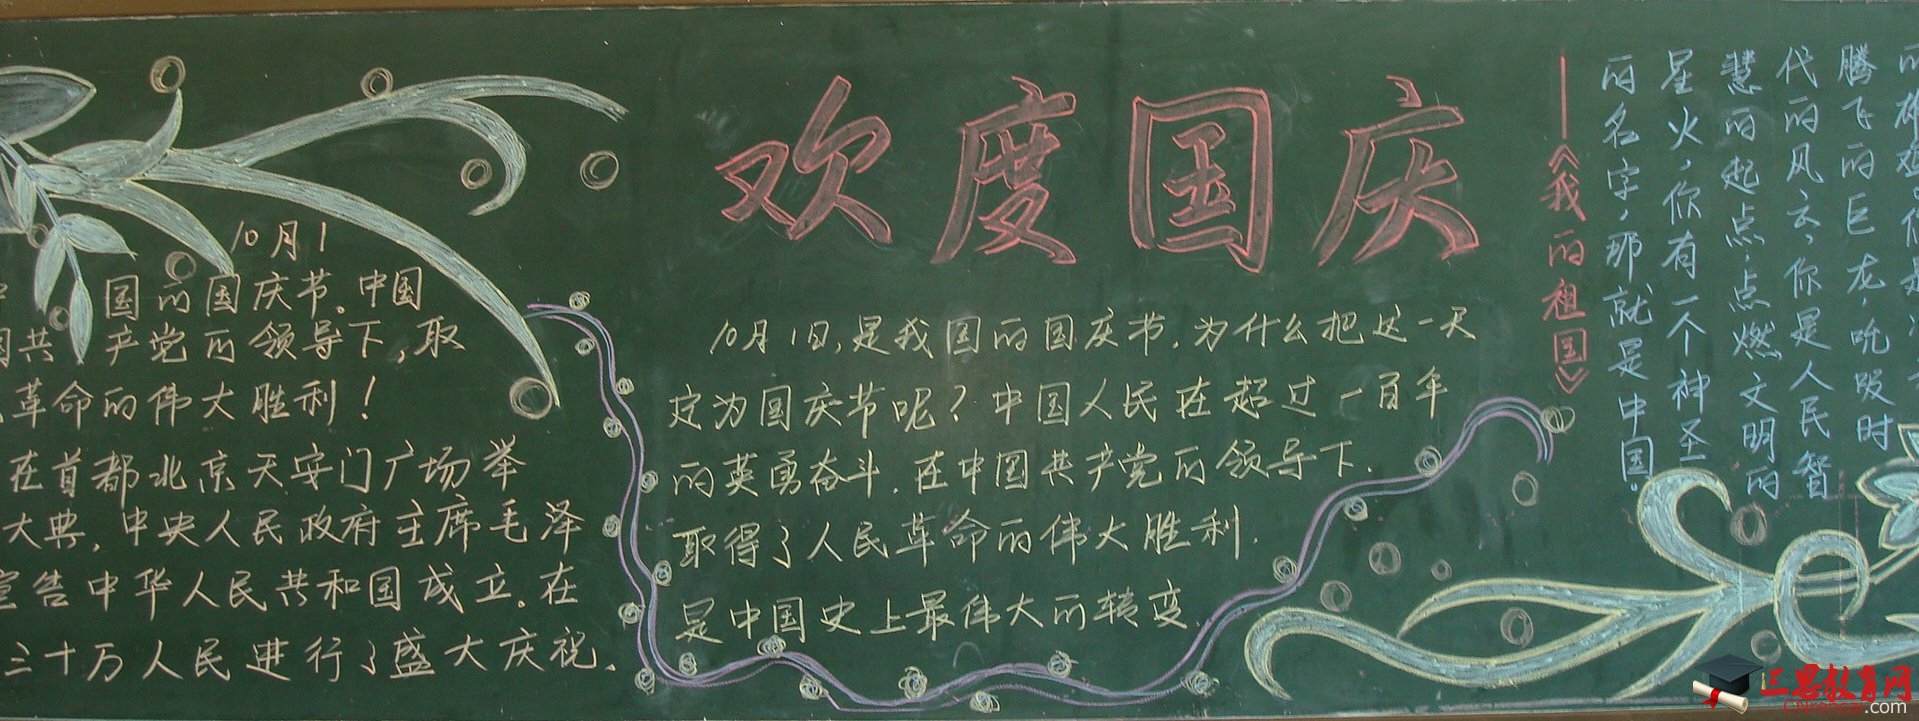 欢度国庆
10月1
国的国庆节。中国
共产党的领导下，取
革命的伟大胜利！
在首都北京天安门广场举
大典，中央人民政府主席毛泽
宣告中华人民共和国成立。在
三十万人民进行了盛大庆祝．
10月1日，是我国的国庆节，为什么把这一天
定为国庆节呢？中国人民在超过一百年
的英勇奋斗．在中国共产党的领导下．
取得了人民革命的伟大胜利．
是中国史上最伟大的转变．
腾飞的巨龙，吮吸时
代的风云，你是人民智
慧的起点，点燃文明的
星火，你有一个神圣
的名字，那就是中国。
——《我的祖国》
三思教育网
.com